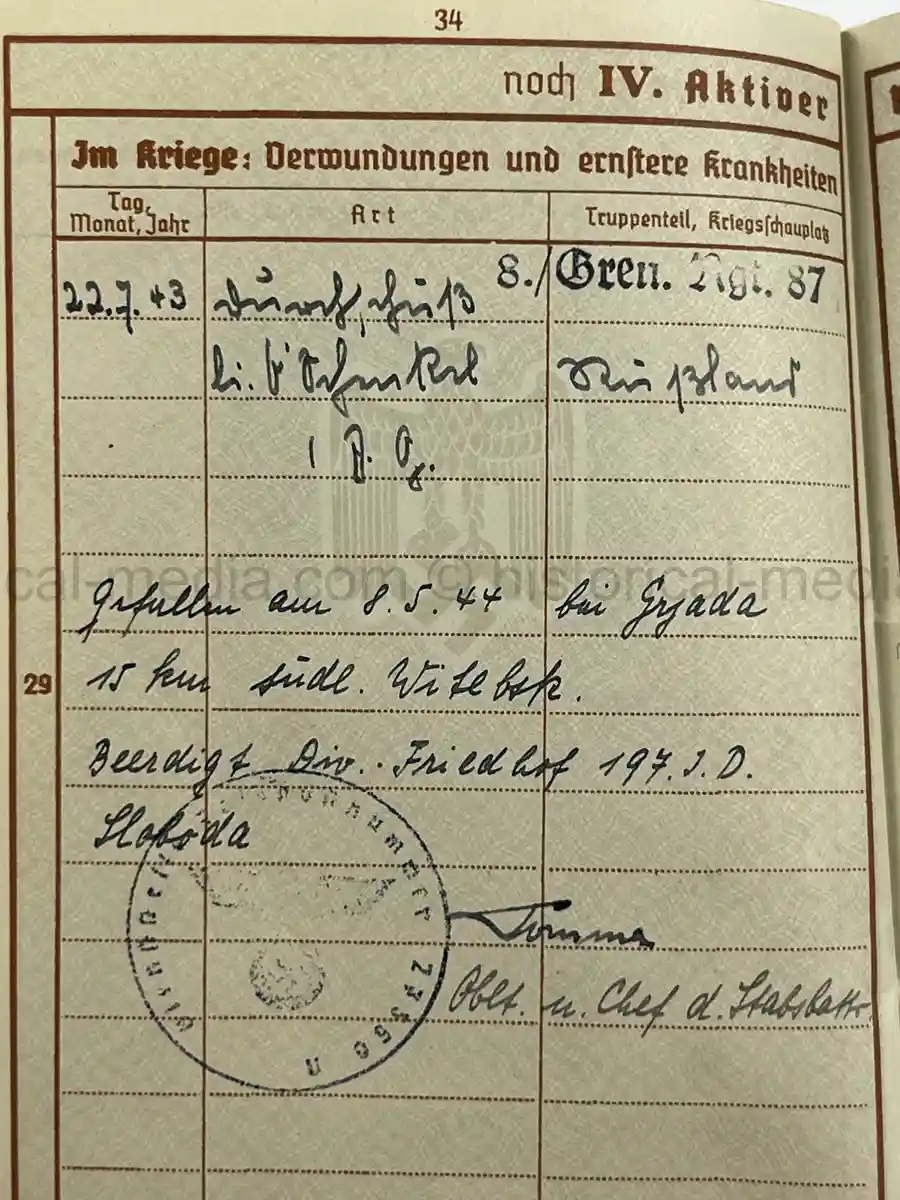 34
noch IV. Aktiver
Im Kriege: Verwundungen und ernstere Krankheiten
Tag, Monat, Jahr
Art
Truppenteil, Kriegsschauplatz
22.7.43 Durchschuß 8./Gren. Rgt. 87
li. Schenkel Rußland
Gefallen am 8.5.44 bei Grjada
29
15 km südl. Witebsk.
Beerdigt Div.-Friedhof 197. I.D.
Sloboda
Oblt. u. Chef d. Stabsbattr.
cal-media.com © historical-medi